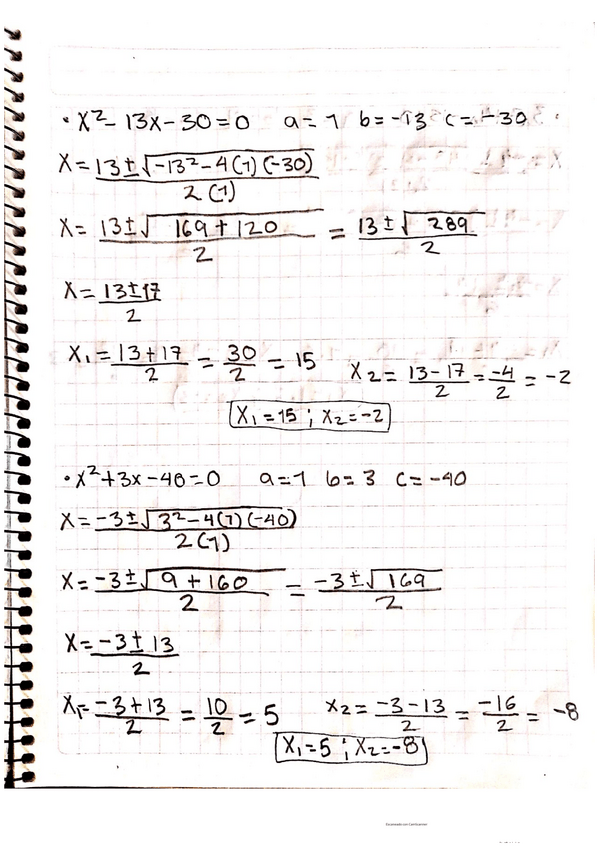 • x² - 13x - 30 = 0   a = 1   b = -13   c = -30
x = 13 ± √(-13² - 4(1)(-30)) / 2(1)
x = 13 ± √(169 + 120) / 2 = 13 ± √289 / 2
x = 13 ± 17 / 2
x₁ = 13 + 17 / 2 = 30 / 2 = 15   x₂ = 13 - 17 / 2 = -4 / 2 = -2
x₁ = 15 ; x₂ = -2
• x² + 3x - 40 = 0   a = 1   b = 3   c = -40
x = -3 ± √(3² - 4(1)(-40)) / 2(1)
x = -3 ± √(9 + 160) / 2 = -3 ± √169 / 2
x = -3 ± 13 / 2
x₁ = -3 + 13 / 2 = 10 / 2 = 5   x₂ = -3 - 13 / 2 = -16 / 2 = -8
x₁ = 5 ; x₂ = -8
Escaneado con CamScanner